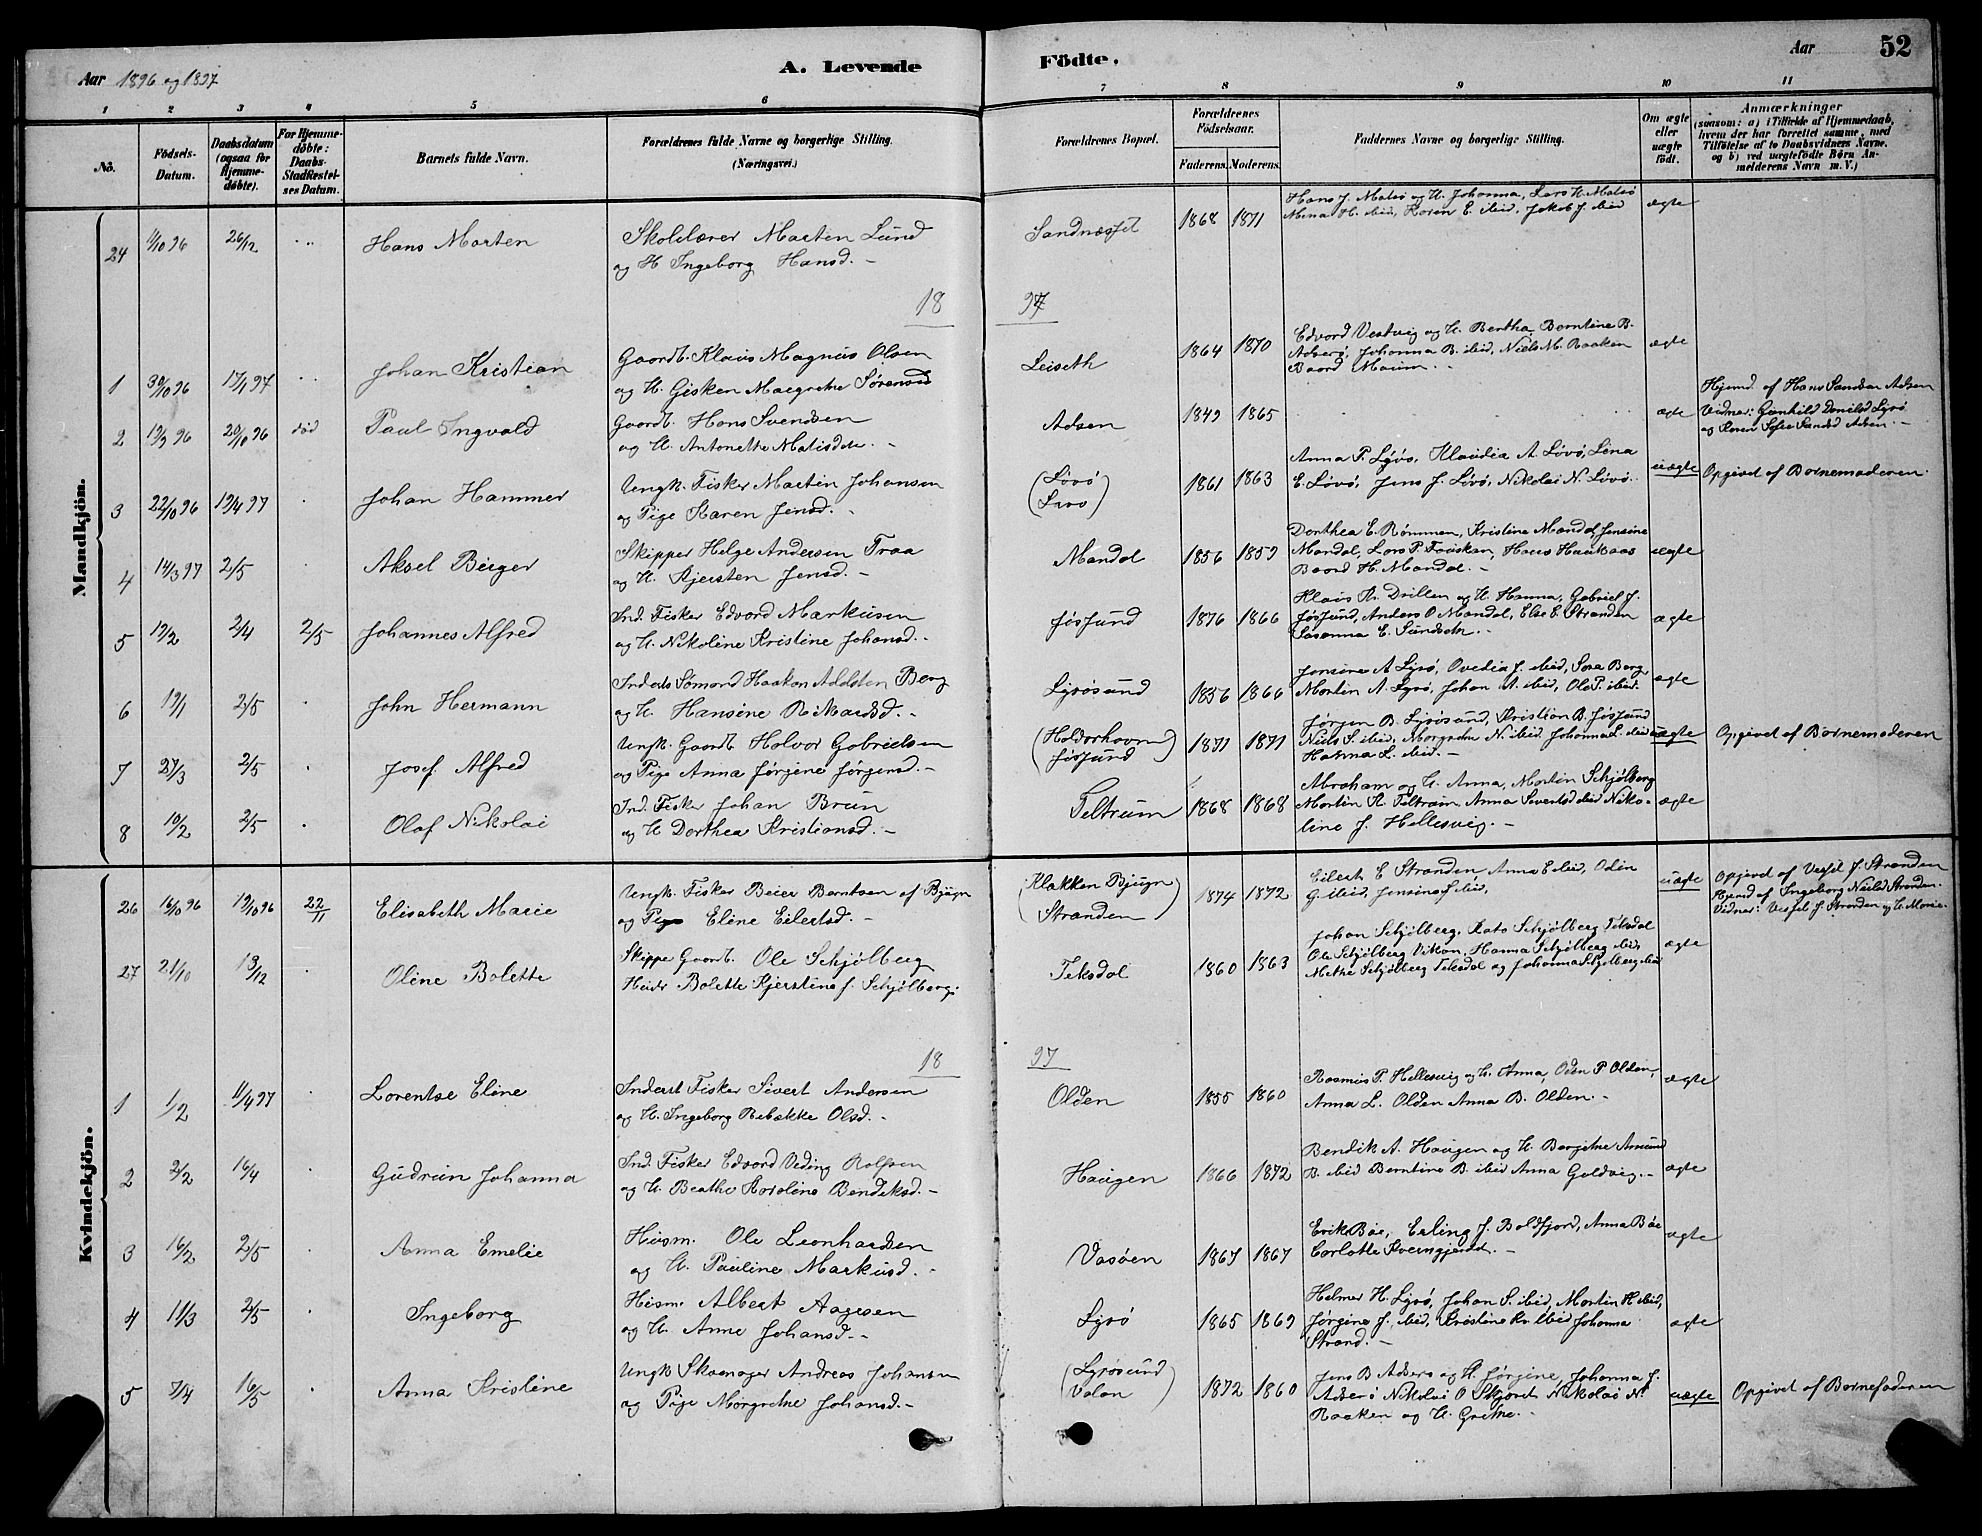 Aar 1896 og 1897
A. Levende
Födte.
Aar
52
1 2 3 4 5 6 7 8 9 10 11
No.
Födsels-Datum.
Daabsdatum (ogsaa for Hjemme-döbte).
For Hjemme-döbte: Daabs-Stadfæstel-ses Datum.
Barnets fulde Navn.
Forældrenes fulde Navne og borgerlige Stilling. (Næringsvei.)
Forældrenes Bopæl.
Forældrenes Födselsaar.
Faderens. Moderens.
Faddernes Navne og borgerlige Stilling.
Om ægte eller uægte födt.
Anmærkninger
(saasom: a) i Tilfælde af Hjemmedaab, hvem der har forrettet samme, med Tilföielse af to Daabsvidners Navne, og b) ved uægtefödte Börn An-melderens Navn m. V.)
Mandkjön.
24 11/10 96 26/12 Hans Morten
Skolelærer Morten Lund
og H Ingeborg Hansd. -
Sandnæsset 1868 1871
Hans J. Melsø og H. Johanna, Lars H. Melsø
Mina H. ibid, Karen E. ibid, Jakob J. ibid
ægte
18 97
1 30/10 96 17/1 97 Johan Kristian
Gaardb. Klaus Magnus Olsen
og H. Gisken Margrethe Sørensd
Leiseth 1864 1870
Edvard Vestvig og H. Bertha, Berntine B.
Adserø, Johanna B. ibid, Niels M. Raaken
Baard Moum. -
ægte
2 19/9 96 20/10 96 død Paul Ingvald
Gaardb. Hans Svendsen
og H. Antonette Matisdtr. -
Adsen 1849 1865
ægte
Hjemd. af Hans Adsen
Vidner: Gunhild Danielsd Lysø
og Karen Sofie Adsen. -
3 22/10 96 19/4 97 Johan Hammer
Ungk. Fisker Martin Johansen
og Pige Karen Jensd. -
(Løvø) 1861 1863
Anna P. Lysø, Klaudia A. Løvø, Lena
E. Løvø, Jens J. Løvø, Nikolai N. Løvø.
uægte
Opgivet af Barnemoderen.
4 14/3 97 2/5 Aksel Birger
Skipper Helge Andersen Traa
og H. Kjersten Jensd. -
Mandal 1856 1859
Dorthea E. Rømmen, Kristine Mandal, Jensine
Mandal, Lars P. Hans Haukaas
Baard H. Mandal. -
ægte
5 19/2 2/4 2/5 Johannes Alfred
Ind. Fisker Edvard Markusen
og H. Nikoline Kristine Johansd. -
Jøssund 1876 1866
Klaus A. Drillen og H. Hanna, Gabriel J.
Jøssund, Anders O Mandal, Else E. Stranden
Susanna E. Sundseth. -
ægte
6 19/1 2/5 John Hermann
Inderst Sømand Haakon Berg
og H. Hansine Rikardsd. -
Lysøsund 1856 1866
Jensine A Lysø, Ovedia J. ibid, Sara Berg,
Martin A. Lysø, Johan A. ibid, Ole P. ibid.
ægte
7 27/3 2/5 Josef Alfred
Ungk. Gaardb. Halvor Gabrielsen
og Pige Anna Jørgine Jørgensd. -
(Jøssund) 1871 1871
Jørgen B. Lysøsund, Kristian B. Jøssund
Niels S. ibid, Margrethe N. ibid Johanna L. ibid
Hanna L. ibid. -
uægte
Opgivet af Barnemoderen
8 10/2 2/5 Olaf Nikolai
Ind. Fisker Johan Brun
og H Dorthea Kristiansd. -
Teltrum 1868 1868
Abraham og H. Anna, Martin Schjølberg
Martin K. Teltrum, Anna Sivertsd ibid Niko-
line J. Hellesvig. -
ægte
Kvindekjön.
26 16/10 96 19/10 96 22/11 Elisabeth Marie
Ungk. Fisker Beier Berntsen af Bjugn
og Pige Eline Eilertsd. -
(Klakken Bjugn Stranden) 1874 1872
Eilert E Stranden, Anna E ibid, Odin
G. ibid, Jensine J. ibid,
uægte
Opgivet af Vessel J. Stranden
Hjemd af Ingeborg Nielsd Stranden.
Vidner: Vessel J. Stranden og H. Marie.
27 21/10 13/12 Oline Bolette
Skipper Gaardb. Ole Schjølberg
Hustr Bolette Kjerstine f. Schjølberg.
Teksdal 1860 1863
Johan Schjølberg, Kats Schjølberg Teksdal
Ole Schjølberg Hanna Schjølberg ibid
Mette Schjølberg Teksdal og Johanna Schjølberg ibid
ægte
18 97
1 1/2 11/4 97 Lorentse Eline
Inderst Fisker Sivert Andersen
og H. Ingeborg Rebække Olsd. -
Olden 1855 1860
Rasmus P. Hellesvig og H. Anna, Oden P Olden,
Anna L. Olden Anna B. Olden. -
ægte
2 2/2 16/4 Gudrun Johanna
Ind. Fisker Edvard Veding Rolfsen
og H. Beathe Karoline Bendiksd. -
Haugen 1866 1872
Bendik A. Haugen og H. Bergithe Amund
B. ibid Berntine B. ibid Anna Goldvig. -
ægte
3 16/2 2/5 Anna Emelie
Husm. Ole Leonhardsen
og H. Pauline Markusd. -
Vasøen 1867 1867
Erik Bøe, Erling J. Boldfjord, Anna Bøe
Carlotte -
ægte
4 11/3 2/5 Ingeborg
Husm. Albert Aagesen
og H. Anne Johansd. -
Lysø 1865 1869
Helmer H. Lysø, Johan S. ibid, Martin H ibid,
Jørgine J. ibid, Kristine Kr. ibid Johanna
Strand. -
ægte
5 7/4 16/5 Anna Kristine
Ungk Skomager Andreas Johansen
og Pige Margrethe Johansd. -
(Lysøsund Valen) 1872 1860
Jens B Adserø og H. Jørgine, Johanna J.
Adserø Nikolai O Nikolai N.
Raaken og H. Grethe. -
uægte
Opgivet af Barnefaderen